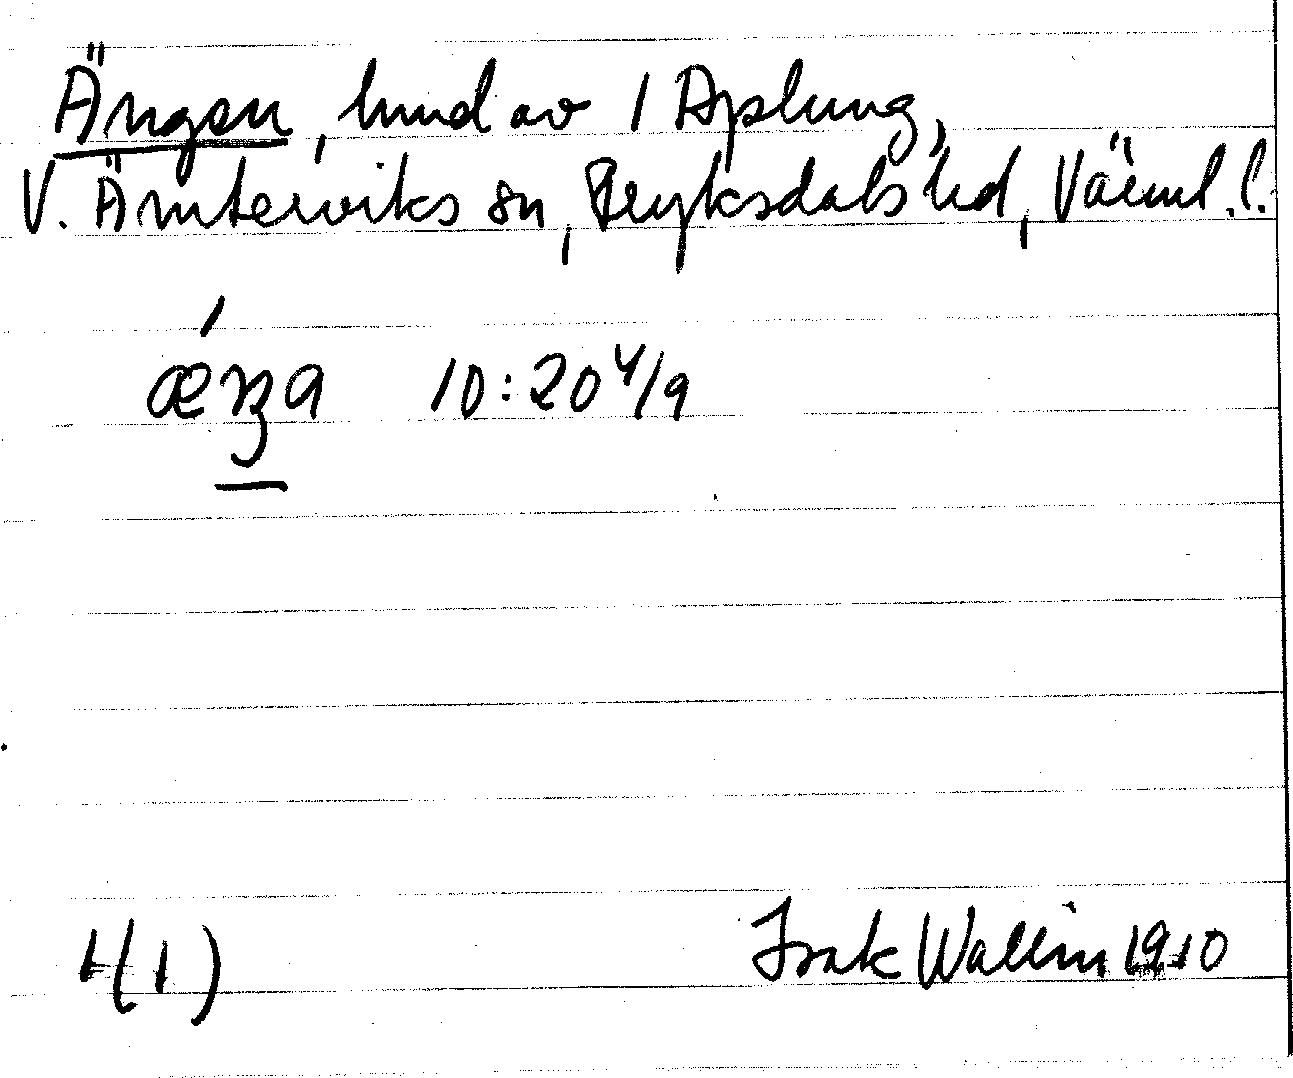 Ängen, hmd av 1 Aplung,
V. Ämterviks sn, Fryksdals hd, Värml. l.
ǽŋa 10:20 4/9
H(1)
Isak Wallin 1910